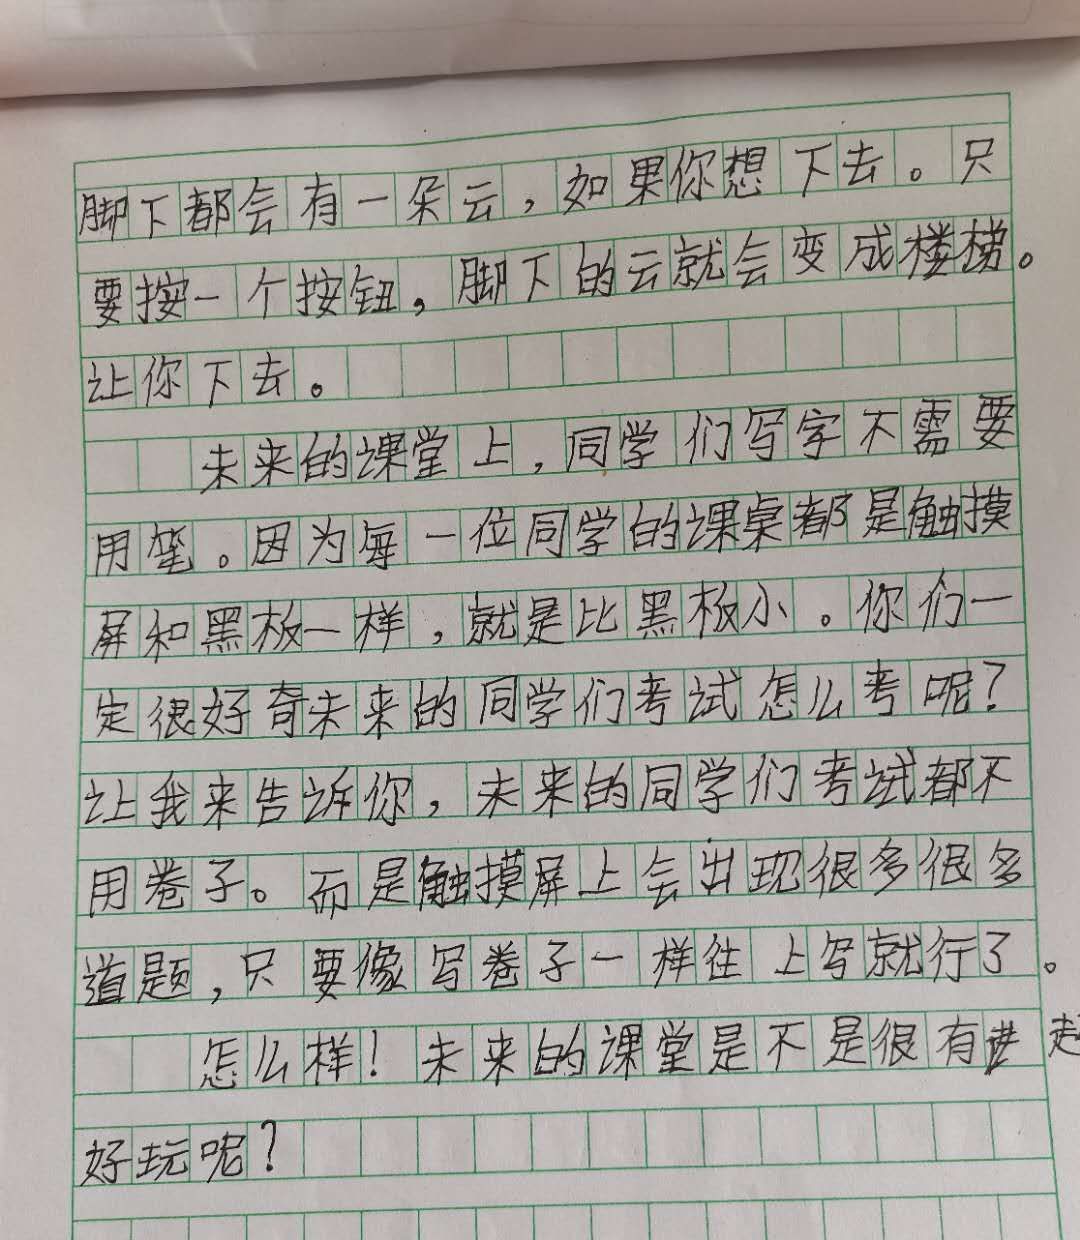 脚下都会有一朵云，如果你想下去。只
要按一个按钮，脚下的云就会变成楼梯。
让你下去。
未来的课堂上，同学们写字不需要
用笔。因为每一位同学的课桌都是触摸
屏和黑板一样，就是比黑板小。你们一
定很好奇未来的同学们考试怎么考呢？
让我来告诉你，未来的同学们考试都不
用卷子。而是触摸屏上会出现很多很多
道题，只要像写卷子一样往上写就行了。
怎么样！未来的课堂是不是很有
好玩呢？